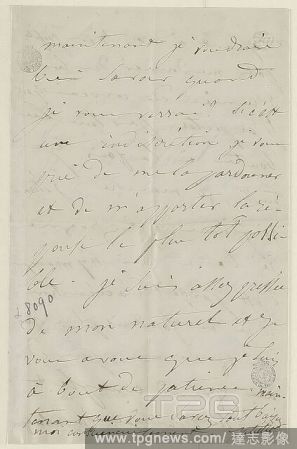 maintenant je voudrais
bien savoir quand
je vous verrai Si c'est
une indiscrétion je vous
prie de me la pardonner
et de m'apporter la ré-
ponse le plus tot possi-
ble. je suis assez pressée
de mon naturel et je
vous avoue que je suis
à bout de patience main-
tenant que vous savez tout
mon
8090
TPG
www.tpgnews.com/達志影像